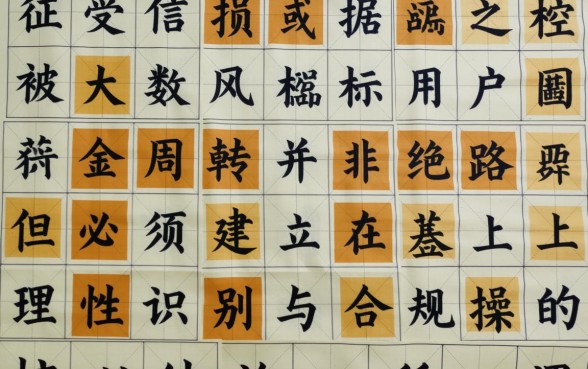 征受信损或据之控
被大数风标用户
金周转并非绝路
但必须建立在基上上
理性识别与合规操的